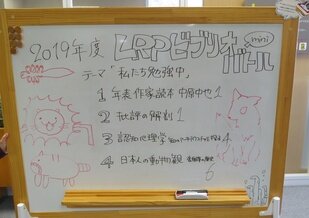 2019年度 LRPビブリオバトル mini
テーマ「私たち勉強中」
1 年表作家読本 中原中也 1
2 批評の解剖 1
3 認知心理学 4
4 日本人の動物観 6